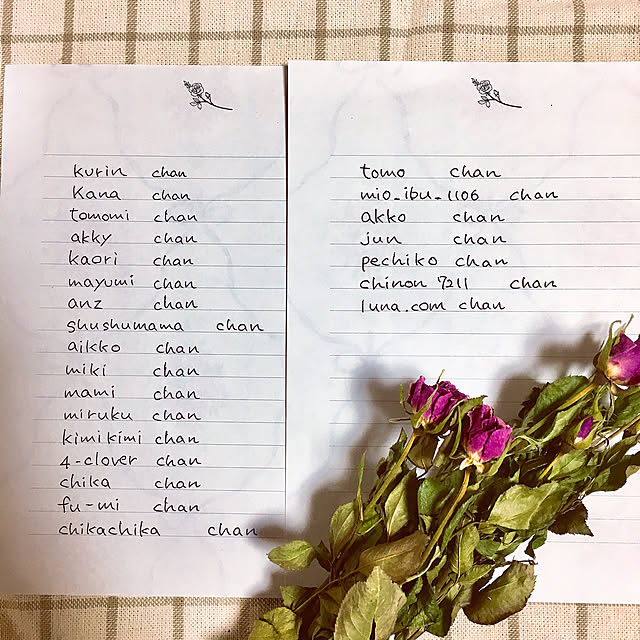 kurin chan
Kana chan
tomomi chan
akky chan
kaori chan
mayumi chan
anz chan
shushumama chan
aikko chan
miki chan
mami chan
miruku chan
kimikimi chan
4-clover chan
chika chan
fu-mi chan
chikachika chan
tomo chan
mio_ibu_1106 chan
akko chan
jun chan
pechiko chan
chinon 7211 chan
luna.com chan